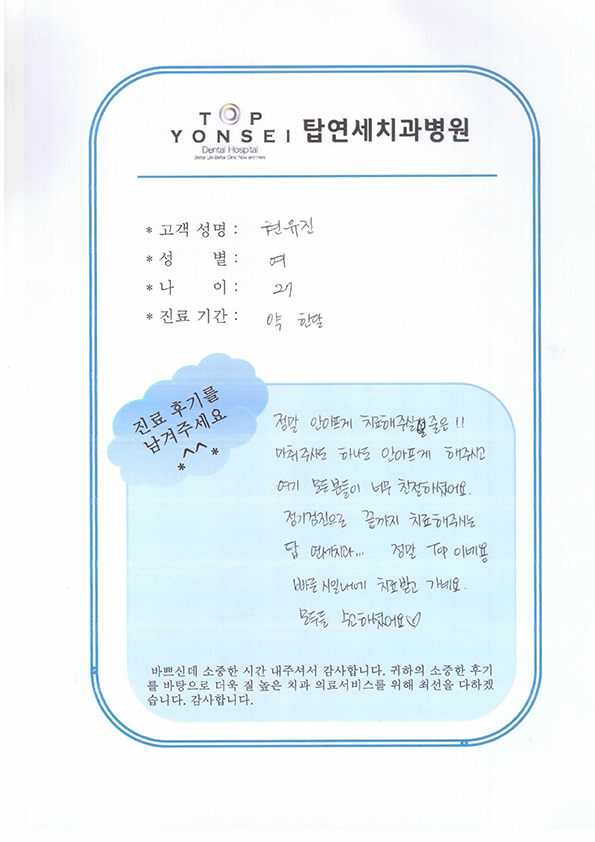 TOP
YONSEI 탑연세치과병원
Dental Hospital
Better Life Better Clinic Now and Here
* 고객 성명 : 현유진
* 성 별 : 여
* 나 이 : 27
* 진료 기간 : 약 한달
진료 후기를
남겨주세요
*^^*
정말 안아프게 치료해주실 줄은!!
마취주사도 하나도 안아프게 해주시고
여기 모든분들이 너무 친절하셨어요.
정기검진으로 끝까지 치료해주시는
탑 연세치과... 정말 Top 이네용
빠른 시일내에 치료받고 가네요.
모두들 수고하셨어요♡
바쁘신데 소중한 시간 내주셔서 감사합니다. 귀하의 소중한 후기
를 바탕으로 더욱 질 높은 치과 의료서비스를 위해 최선을 다하겠
습니다. 감사합니다.